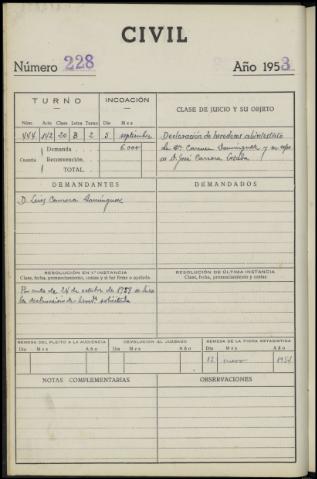 CIVIL
Número 228 Año 1953
TURNO INCOACIÓN CLASE DE JUICIO Y SU OBJETO
Núm. Acta Clase Letra Turno Día Mes
444 142 20 B 2 5 septiembre
Declaración de herederos abintestato
Demanda 6.000
de Dª Carmen Domínguez y su espo
Cuantía Reconvención.
so D. José Carrera
TOTAL
DEMANDANTES DEMANDADOS
D. Luis Carrera Domínguez
RESOLUCIÓN EN 1ª INSTANCIA RESOLUCIÓN DE ÚLTIMA INSTANCIA
Clase, fecha, pronunciamiento, costas y si fué firme o apelada. Clase, Fecha, pronunciamiento y costas
Por auto de 24 de octubre de 1959 se hizo
la declaración de herederos solicitada
REMESA DEL PLEITO A LA AUDIENCIA DEVOLUCIÓN AL JUZGADO REMESA DE LA FICHA ESTADÍSTICA
Día Mes Año Día Mes Año Día Mes Año
12 enero 1954
NOTAS COMPLEMENTARIAS OBSERVACIONES